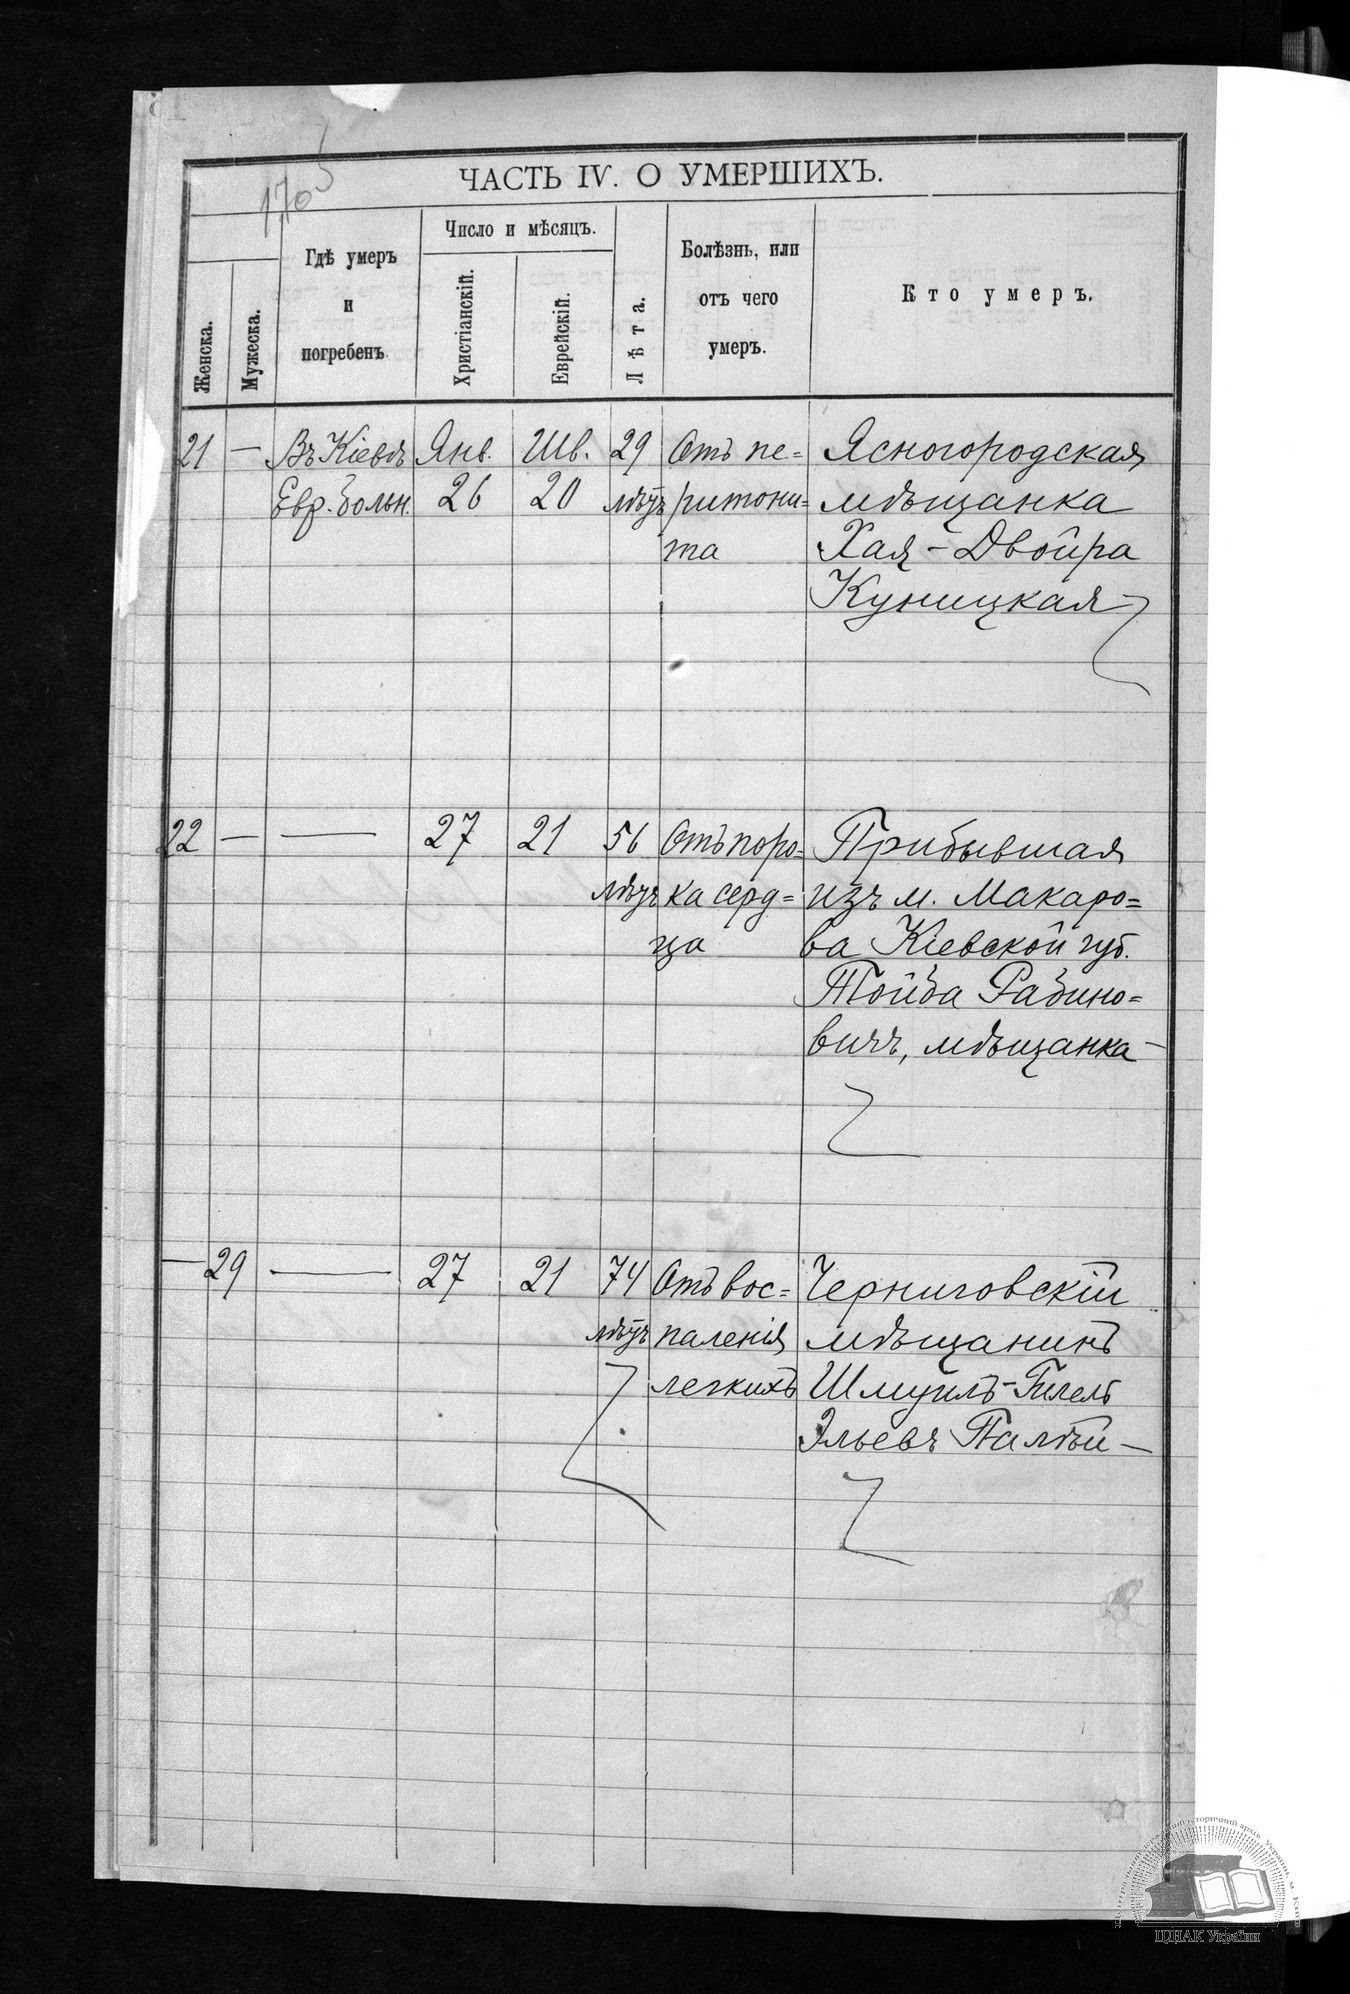 1705
ЧАСТЬ IV. О УМЕРШИХЪ.
Женска.
Мужеска.
Гдѣ умеръ
и
погребенъ
Число и мѣсяцъ.
Христіанскій.
Еврейскій.
Лѣта.
Болѣзнь, или
отъ чего
умеръ.
Кто умеръ.
21 — Въ Кіевѣ Янв. Шв. 29 Отъ пе= Ясногородская
Евр. больн. 26 20 лѣтъ ритони= мѣщанка
та Хая-Двойра
Куницкая
22 — — 27 21 56 Отъ поро= Прибывшая
лѣтъ ка серд= изъ м. Макаро=
ца ва Кіевской губ.
Тойба Рабино=
вичъ, мѣщанка —
— 29 — 27 21 74 Отъ вос= Черниговскій
лѣтъ паленія мѣщанинъ
легкихъ Шмуилъ-Гилель
Эльевъ Палѣй —
ЦДІАК України